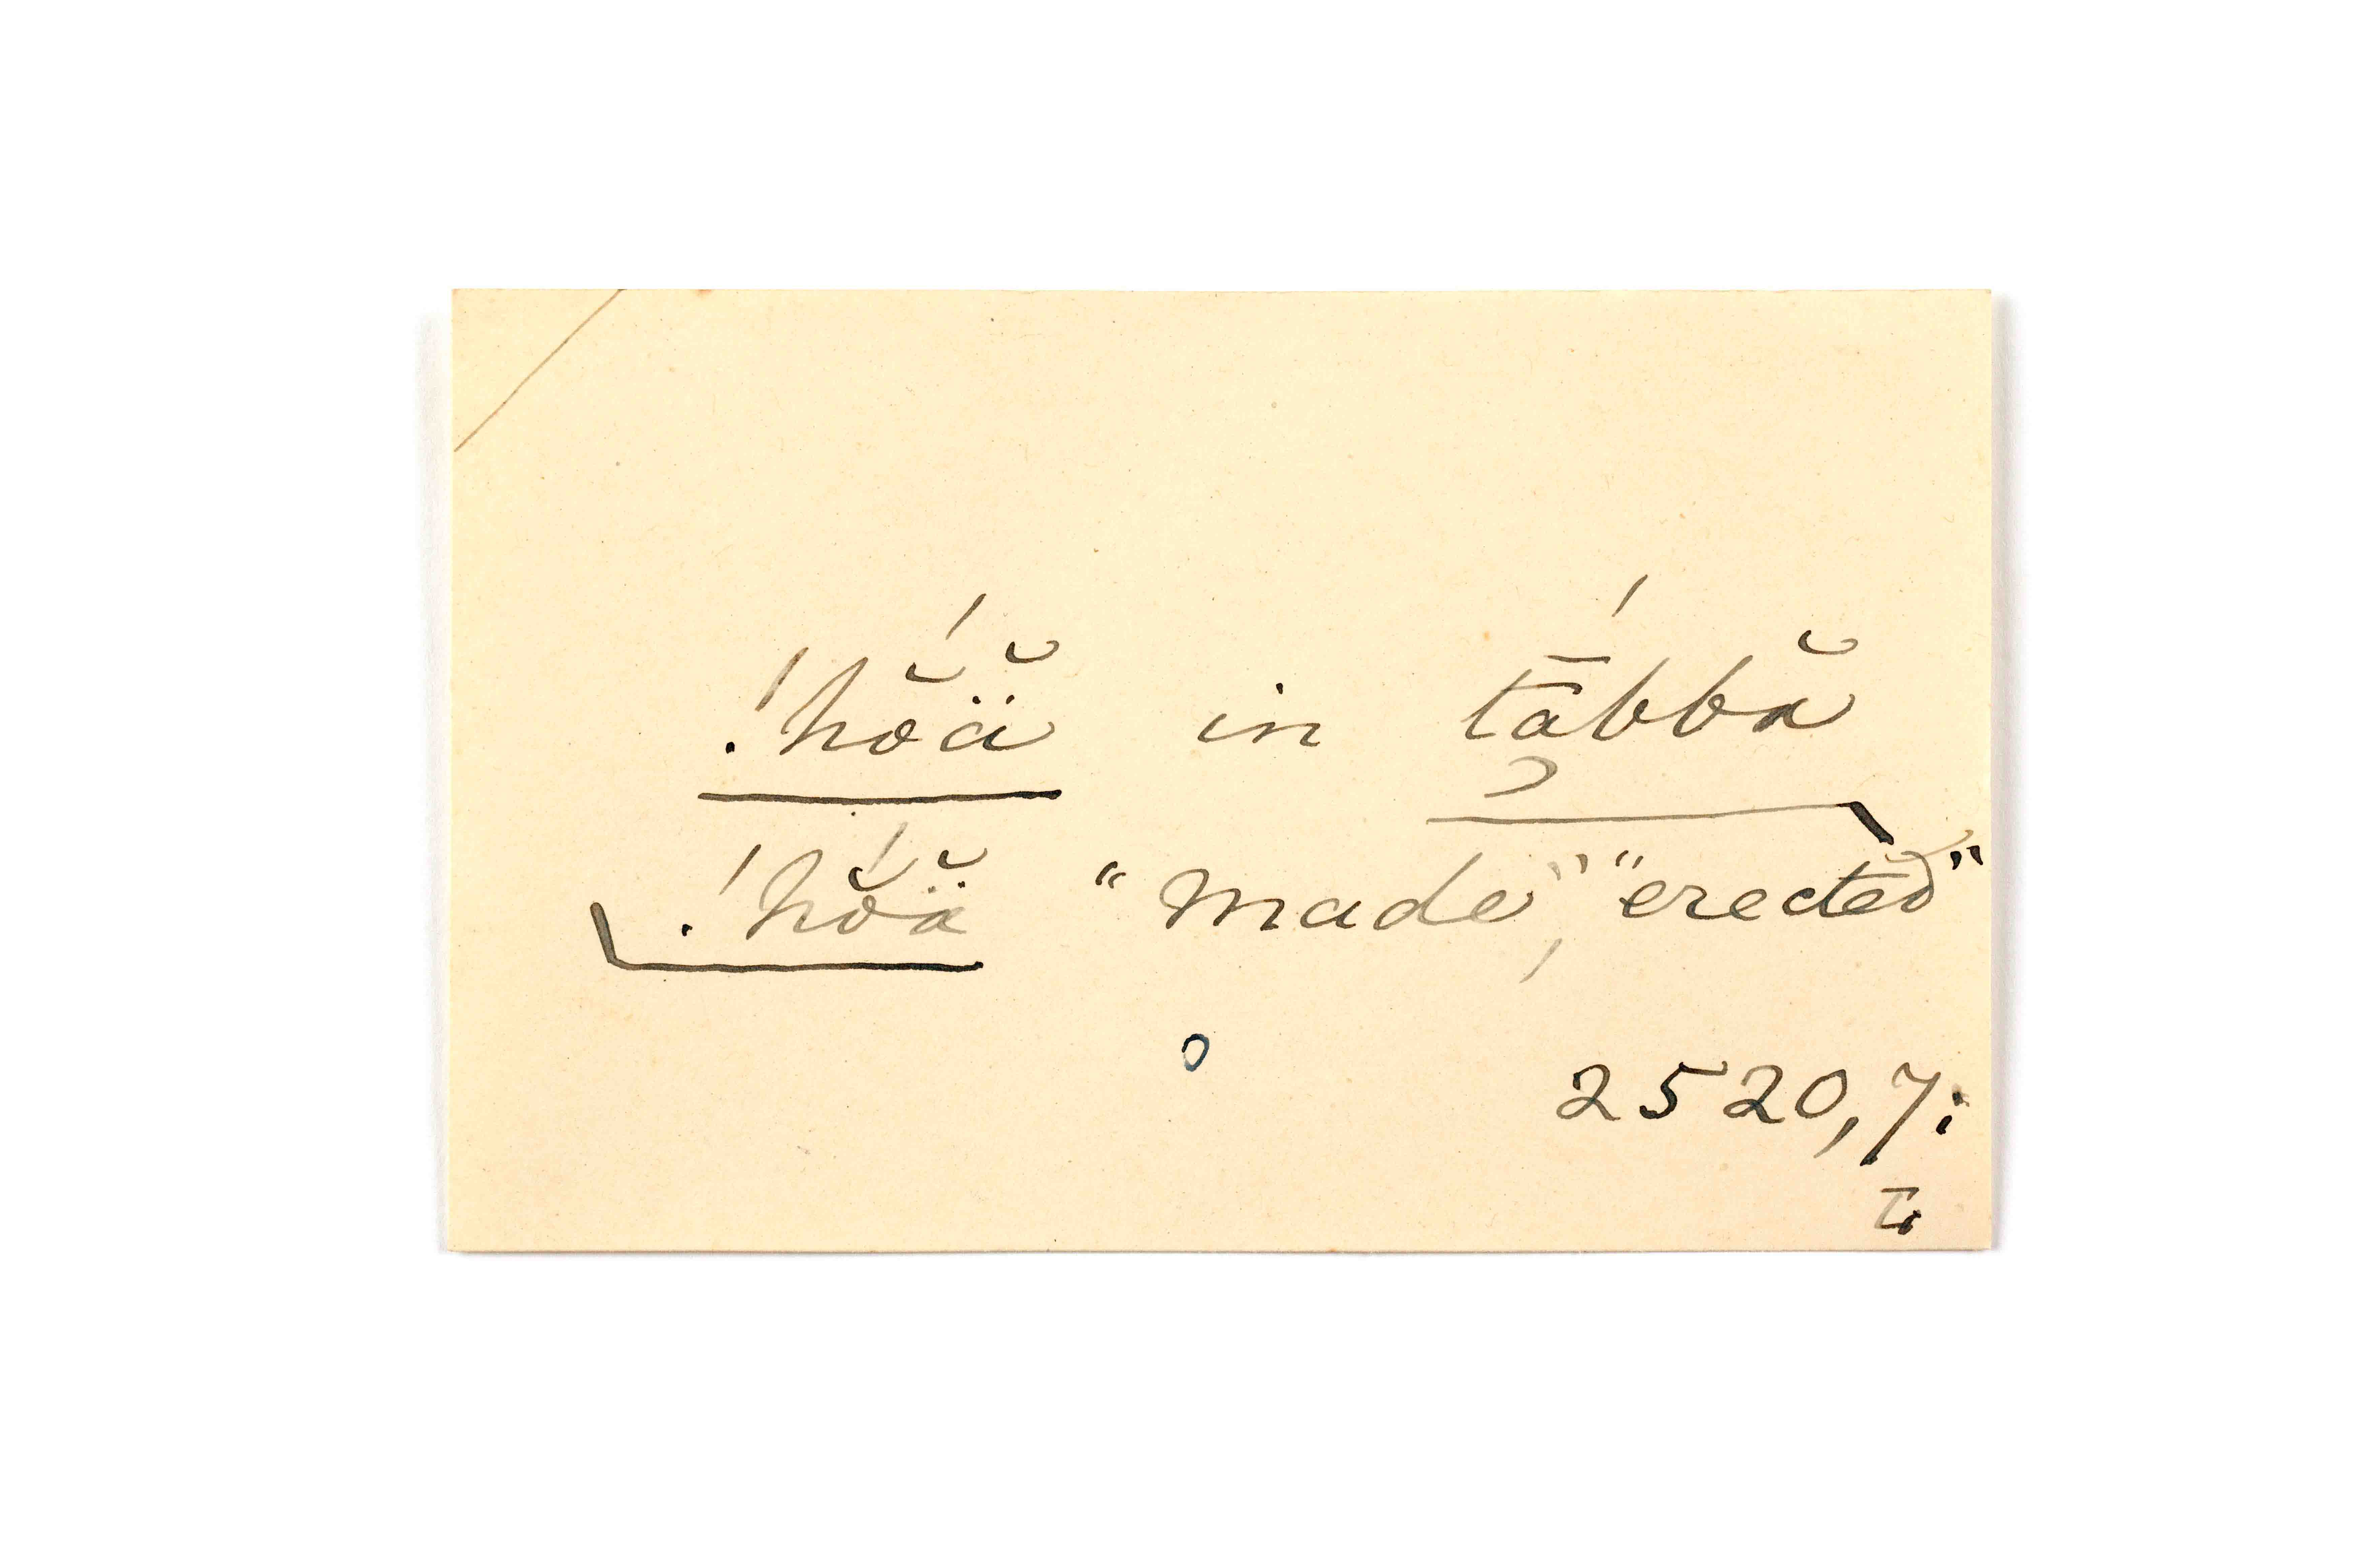 !hŏ́ä̆ in tā́bbă
!hŏ́ä̆ "made", "erected"
o
2520,7: